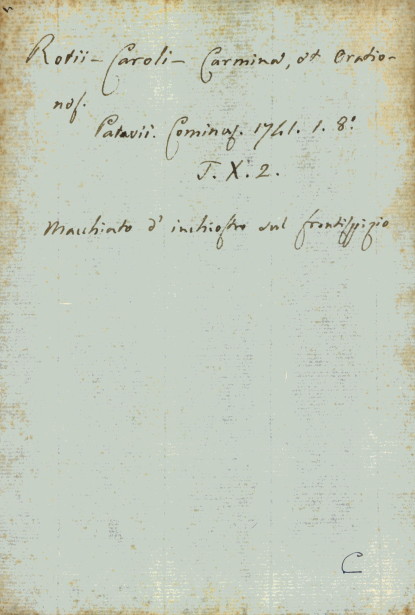 Rotii - Caroli - Carmina, et Oratio-
nes.
Patavii. Cominus. 1741. 1. 8°.
T. X. 2.
Macchiato d' inchiostro sul frontispizio
C